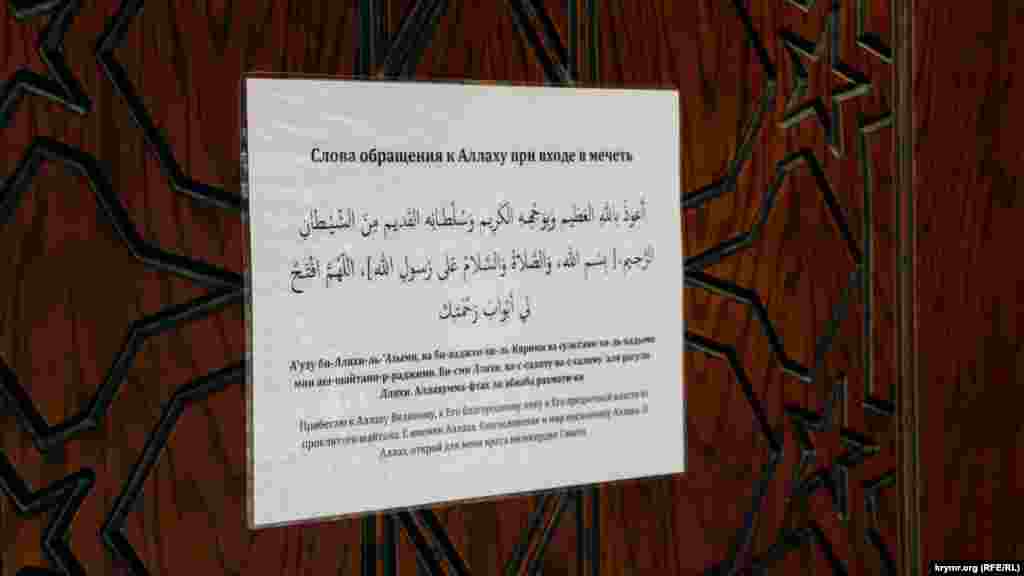 Слова обращения к Аллаху при входе в мечеть
أعوذُ باللهِ العَظِيم وَبِوَجْهِهِ الكَرِيم وَسُلْطَانِه القَدِيم مِنَ الشَّيْطَانِ
الرَّجِيم.[ بِسْمِ الله، وَالصَّلاةُ وَالسَّلامُ عَلى رَسولِ الله]، اللَّهُمَّ افْتَحْ
لي أبْوابَ رَحْمَتِك
А'узу би-Лляхи-ль-'Азыми, ва би-ваджхи-хи-ль-Кярими ва султани-хи-ль-кадыми
мин аш-шайтани-р-раджими. Би-сми Лляхи, ва-с-саляту ва-с-саляму 'аля расули-
Лляхи. Аллахумма-фтах ли абваба рахмати-ка
Прибегаю к Аллаху Великому, к Его благородному лику и Его предвечной власти от
проклятого шайтана. С именем Аллаха, благословение и мир посланнику Аллаха. О
Аллах, открой для меня врата милосердия Твоего
krymr.org (RFE/RL)